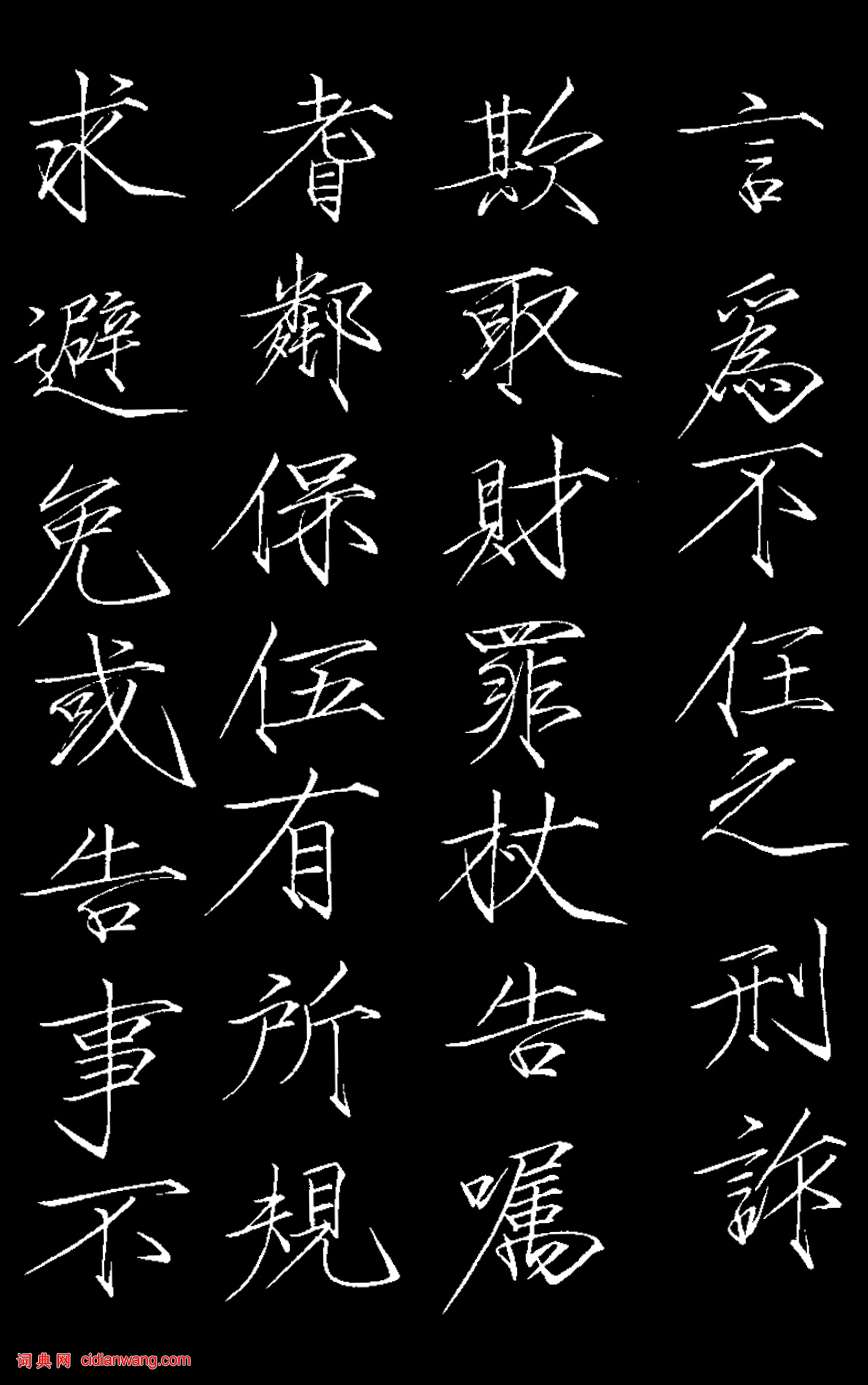 言爲不任之刑詐
欺取財罪杖告嘱
耆鄰保伍有所規
求避免或告事不
词典网 cidianwang.com